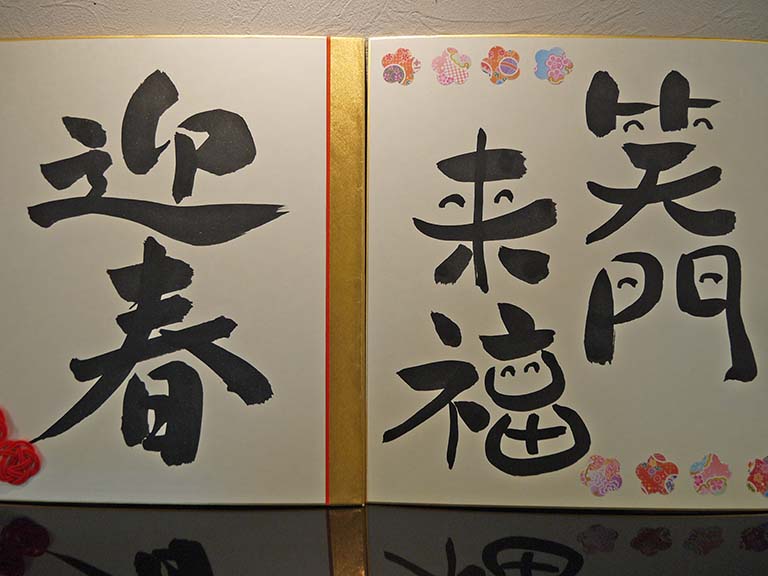 笑門
来福
迎春